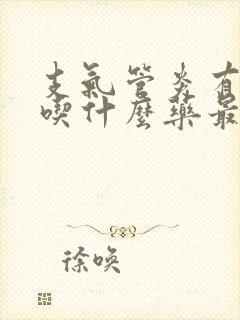 支氣管炎有
喫什麼藥最
徐喚